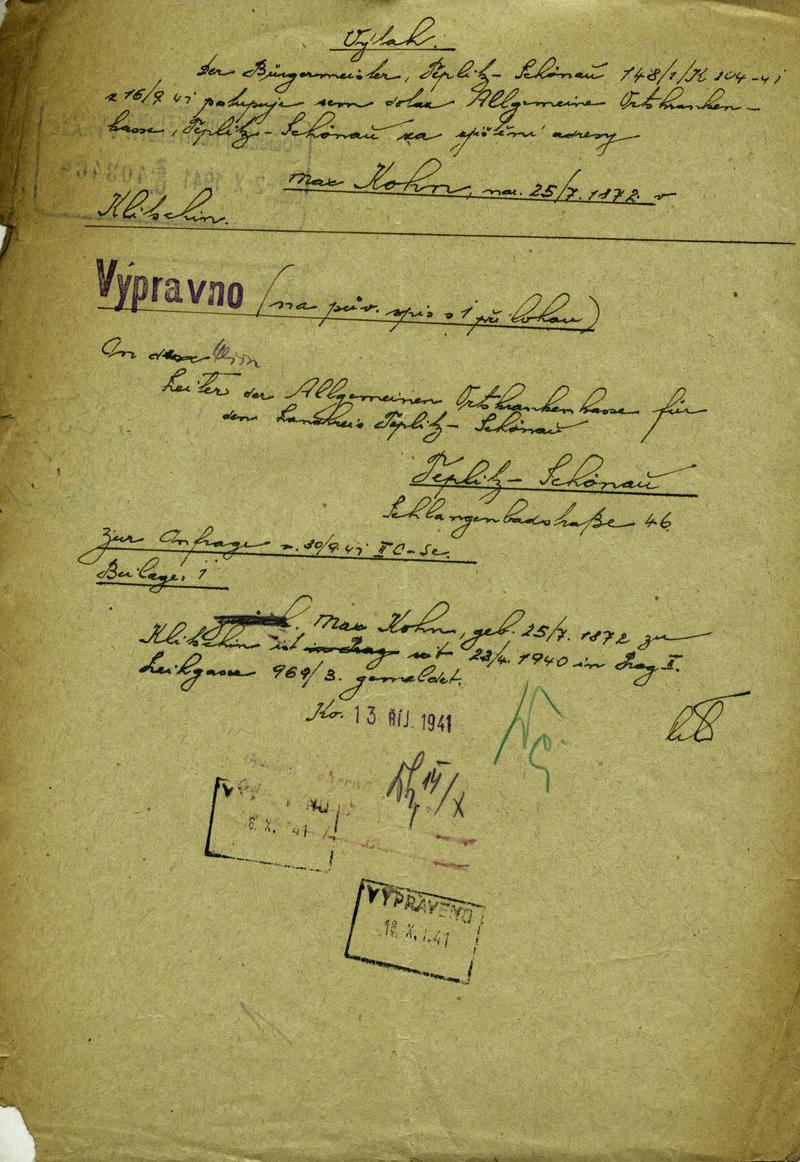 Výtah.
Der Bürgermeister, Teplitz-Schönau 148/1/K 104-41
z 16/9 41 postupuje sem dotaz Allgemeine Ortskranken-
kasse, Teplitz-Schönau za zjištění adresy
Max Kohn, nar. 25/7. 1872 v
Klitschin.
Výpravno (na pův. spis s 1 přílohou)
An den
Leiter der Allgemeinen Ortskrankenkasse für
den Landkreis Teplitz-Schönau
Teplitz-Schönau
Schlangenbadstraße 46
Zur Anfrage v. 30/9. 41 II C-Se.
Beilage: 1
Max Kohn, geb. 25/7. 1872 zu
Klitschin ist seit 23/4. 1940 in Prag II.
969/3. gemeldet.
Ko. 13 ŘÍJ. 1941
14/X
X. 41
VYPRAVENO
18. X. 1941